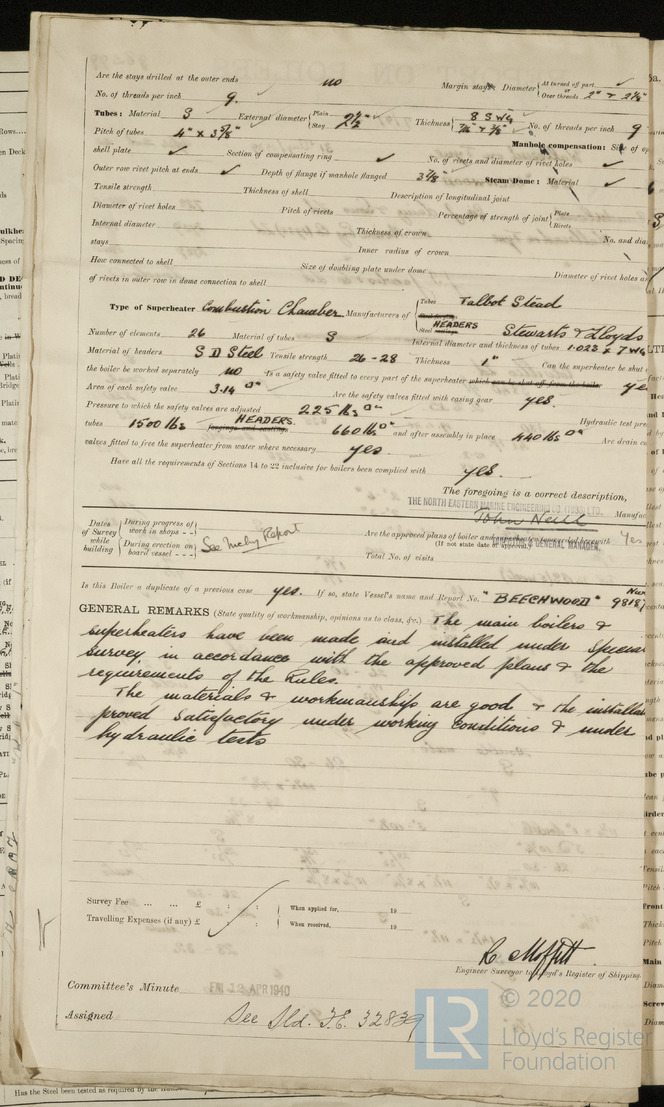 Are the stays drilled at the outer ends no Margin stays: Diameter { At turned off part. Over threads 2" & 2 1/8"
No. of threads per inch 9.
Tubes: Material S External diameter { Plain Stay 2 1/2" 2 1/2" Thickness { 8 SWG 5/16" & 3/8" No. of threads per inch 9
Pitch of tubes 4" x 3 7/8" Manhole compensation: Size of op
shell plate Section of compensating ring No. of rivets and diameter of rivet holes
Outer row rivet pitch at ends Depth of flange if manhole flanged 3 7/8" Steam Dome: Material
Tensile strength Thickness of shell Description of longitudinal joint
Diameter of rivet holes Pitch of rivets Percentage of strength of joint { Plate Rivets
Internal diameter Thickness of crown No. and dia
stays Inner radius of crown
How connected to shell Size of doubling plate under dome Diameter of rivet holes a
of rivets in outer row in dome connection to shell
Type of Superheater Combustion Chamber Manufacturers of { Tubes Talbot Stead
HEADERS Steel Stewarts & Lloyds
Number of elements 26 Material of tubes S Internal diameter and thickness of tubes 1.023 x 7 WG
Material of headers S D Steel Tensile strength 26-28 Thickness 1" Can the superheater be shut
the boiler be worked separately no Is a safety valve fitted to every part of the superheater which can be shut off from the boiler ye
Area of each safety valve 3.14 □" Are the safety valves fitted with easing gear yes.
Pressure to which the safety valves are adjusted 225 lbs □" Hydraulic test pre
tubes 1500 lbs HEADERS forgings and castings 660 lbs □" and after assembly in place 440 lbs □" Are drain c
valves fitted to free the superheater from water where necessary yes.
Have all the requirements of Sections 14 to 22 inclusive for boilers been complied with yes.
The foregoing is a correct description,
THE NORTH EASTERN MARINE ENGINEERING CO. (1938) LTD.
John Neill Manufac
GENERAL MANAGER.
Dates of Survey while building { During progress of work in shops - - } { During erection on board vessel - - - } See Mchy Report
Are the approved plans of boiler and superheater forwarded herewith Yes
(If not state date of approval.)
Total No. of visits
Is this Boiler a duplicate of a previous case yes. If so, state Vessel's name and Report No. "BEECHWOOD" 9818
GENERAL REMARKS (State quality of workmanship, opinions as to class, &c.) The main boilers &
superheaters have been made and installed under Special
Survey, in accordance with the approved plans & the
requirements of the Rules.
The materials & workmanship are good & the install
proved satisfactory under working conditions & under
hydraulic tests
Survey Fee ... ... £ : : When applied for, 19
Travelling Expenses (if any) £ : : When received, 19
R. Moffitt
Engineer Surveyor to Lloyd's Register of Shipping.
Committee's Minute FRI 12 APR 1940
Assigned See Sld. F.E. 32839
LR © 2020
Lloyd's Register
Foundation
Has the Steel been tested as required by the